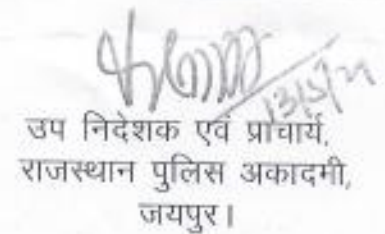 13/5/21
उप निदेशक एवं प्राचार्य,
राजस्थान पुलिस अकादमी,
जयपुर।